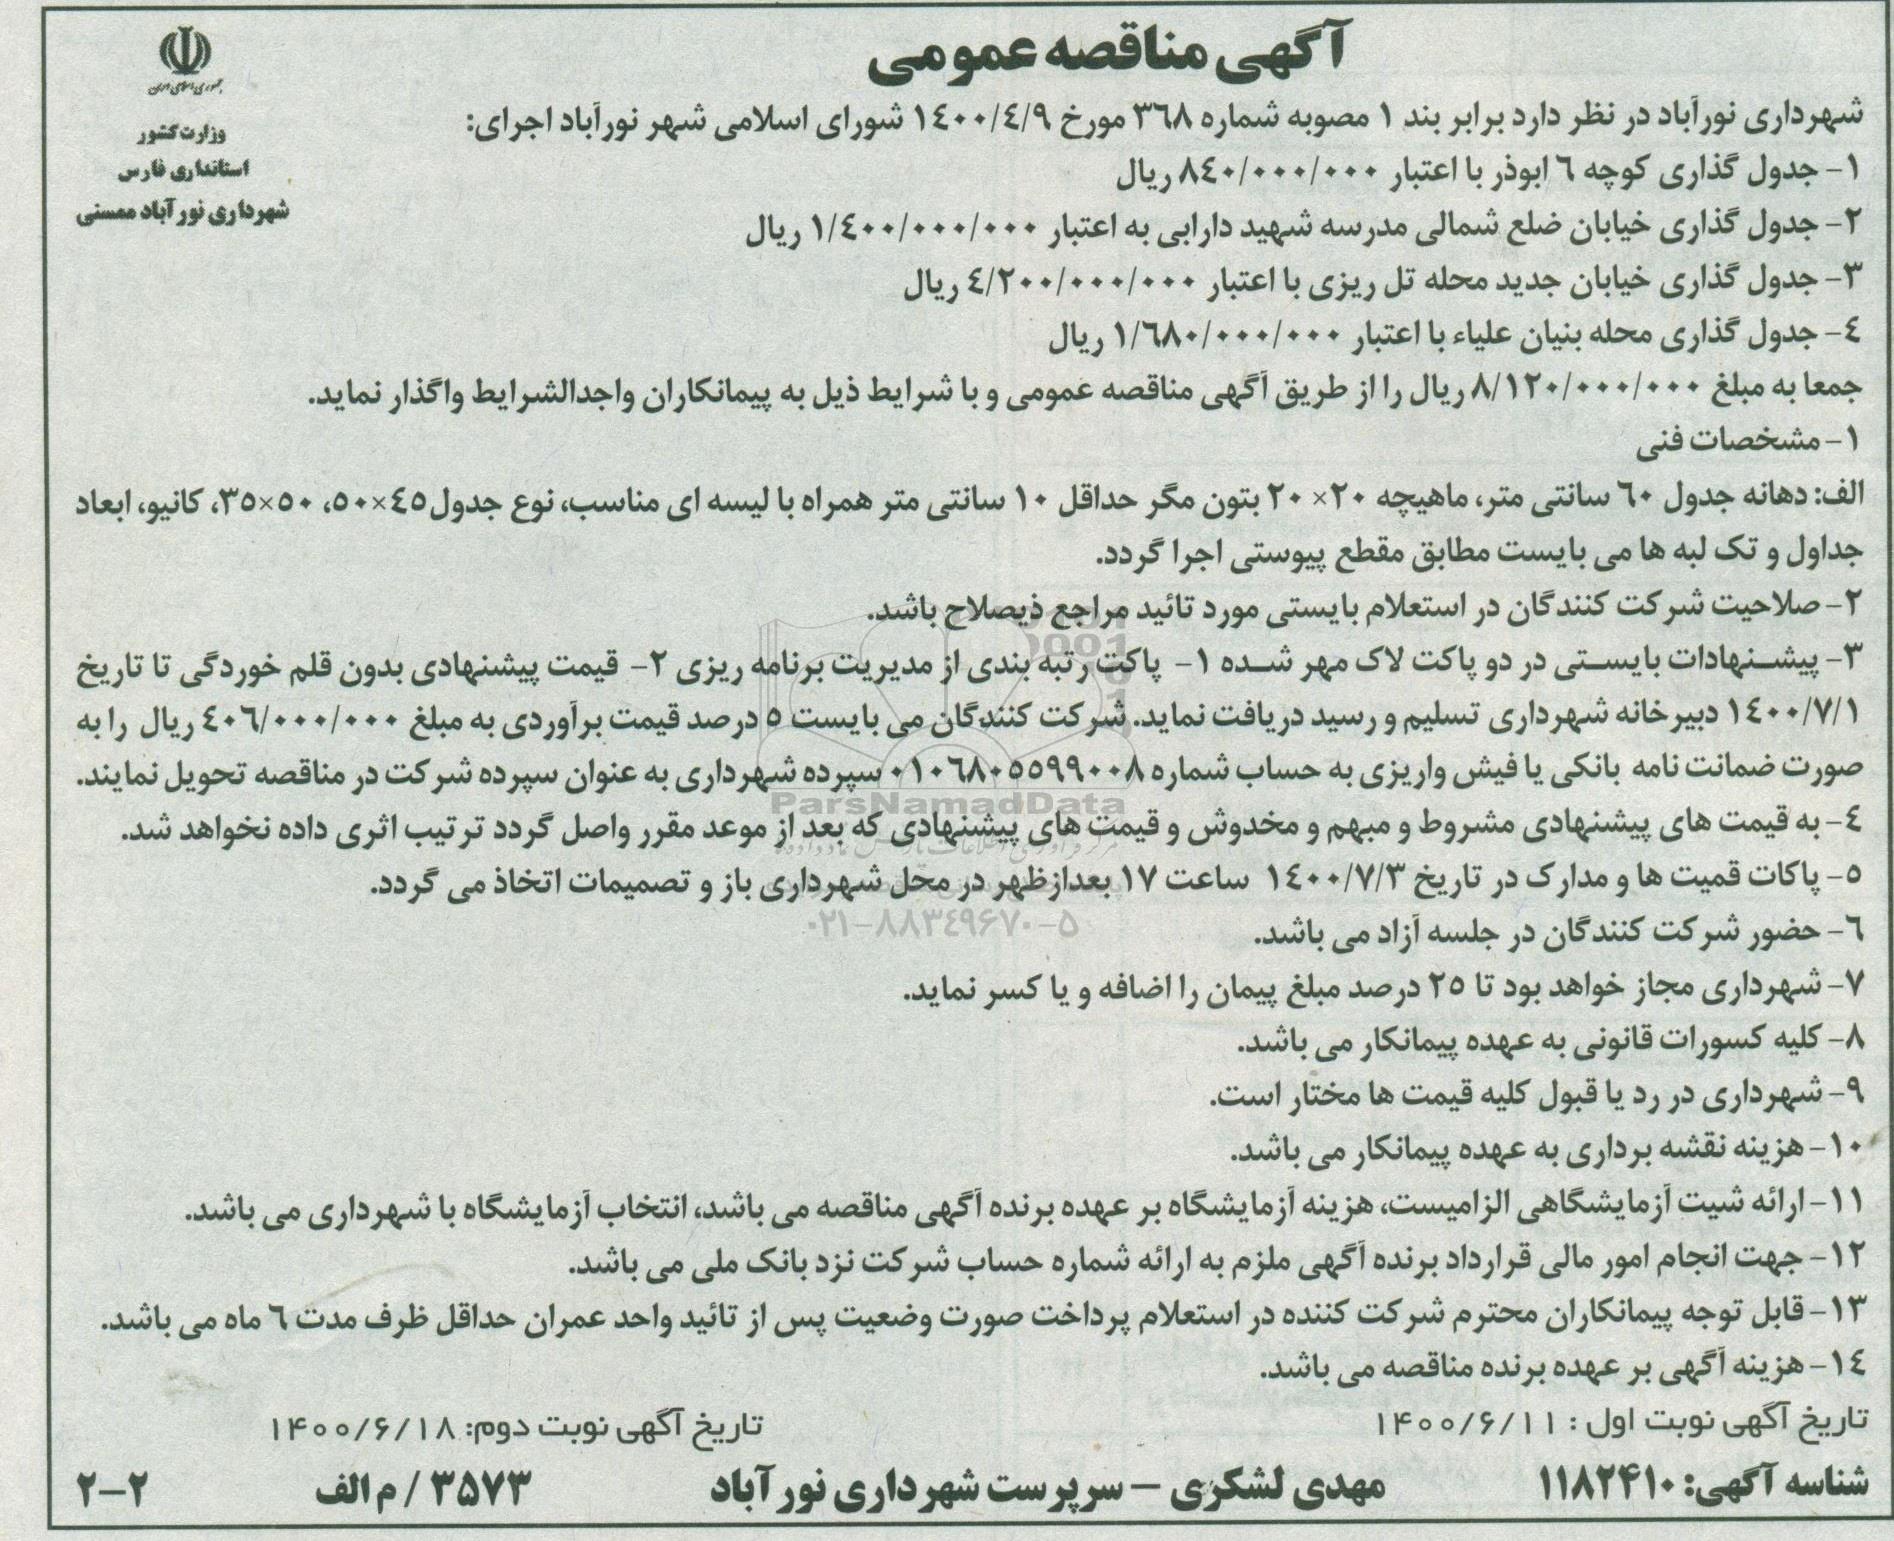 آگهی مناقصه عمومی
جمهوری اسلامی ایران
وزارت کشور
استانداری فارس
شهرداری نورآباد ممسنی
شهرداری نورآباد در نظر دارد برابر بند ۱ مصوبه شماره ۳٦۸ مورخ ۱٤۰۰/٤/۹ شورای اسلامی شهر نورآباد اجرای:
۱- جدول گذاری کوچه ٦ ابوذر با اعتبار ۸٤۰/۰۰۰/۰۰۰ ریال
۲- جدول گذاری خیابان ضلع شمالی مدرسه شهید دارابی به اعتبار ۱/٤۰۰/۰۰۰/۰۰۰ ریال
۳- جدول گذاری خیابان جدید محله تل ریزی با اعتبار ٤/۲۰۰/۰۰۰/۰۰۰ ریال
٤- جدول گذاری محله بنیان علیاء با اعتبار ۱/٦۸۰/۰۰۰/۰۰۰ ریال
جمعا به مبلغ ۸/۱۲۰/۰۰۰/۰۰۰ ریال را از طریق آگهی مناقصه عمومی و با شرایط ذیل به پیمانکاران واجدالشرایط واگذار نماید.
۱- مشخصات فنی
الف: دهانه جدول ٦۰ سانتی متر، ماهیچه ۲۰×۲۰ بتون مگر حداقل ۱۰ سانتی متر همراه با لیسه ای مناسب، نوع جدول٤٥×٥۰، ٥۰×۳٥، کانیو، ابعاد
جداول و تک لبه ها می بایست مطابق مقطع پیوستی اجرا گردد.
۲- صلاحیت شرکت کنندگان در استعلام بایستی مورد تائید مراجع ذیصلاح باشد.
۳- پیشنهادات بایستی در دو پاکت لاک مهر شده ۱- پاکت رتبه بندی از مدیریت برنامه ریزی ۲- قیمت پیشنهادی بدون قلم خوردگی تا تاریخ
۱٤۰۰/۷/۱ دبیرخانه شهرداری تسلیم و رسید دریافت نماید. شرکت کنندگان می بایست ٥ درصد قیمت برآوردی به مبلغ ٤۰٦/۰۰۰/۰۰۰ ریال را به
صورت ضمانت نامه بانکی یا فیش واریزی به حساب شماره ۰۱۰٦۸۰٥٥۹۹۰۰۸ سپرده شهرداری به عنوان سپرده شرکت در مناقصه تحویل نمایند.
ParsNamadData
٤- به قیمت های پیشنهادی مشروط و مبهم و مخدوش و قیمت های پیشنهادی که بعد از موعد مقرر واصل گردد ترتیب اثری داده نخواهد شد.
٥- پاکات قمیت ها و مدارک در تاریخ ۱٤۰۰/۷/۳ ساعت ۱۷ بعدازظهر در محل شهرداری باز و تصمیمات اتخاذ می گردد.
۰۲۱-۸۸۳۴۹۶۷۰-۵
٦- حضور شرکت کنندگان در جلسه آزاد می باشد.
۷- شهرداری مجاز خواهد بود تا ۲٥ درصد مبلغ پیمان را اضافه و یا کسر نماید.
۸- کلیه کسورات قانونی به عهده پیمانکار می باشد.
۹- شهرداری در رد یا قبول کلیه قیمت ها مختار است.
۱۰- هزینه نقشه برداری به عهده پیمانکار می باشد.
۱۱- ارائه شیت آزمایشگاهی الزامیست، هزینه آزمایشگاه بر عهده برنده آگهی مناقصه می باشد، انتخاب آزمایشگاه با شهرداری می باشد.
۱۲- جهت انجام امور مالی قرارداد برنده آگهی ملزم به ارائه شماره حساب شرکت نزد بانک ملی می باشد.
۱۳- قابل توجه پیمانکاران محترم شرکت کننده در استعلام پرداخت صورت وضعیت پس از تائید واحد عمران حداقل ظرف مدت ٦ ماه می باشد.
۱٤- هزینه آگهی بر عهده برنده مناقصه می باشد.
تاریخ آگهی نوبت اول : ۱۴۰۰/۶/۱۱ تاریخ آگهی نوبت دوم: ۱۴۰۰/۶/۱۸
شناسه آگهی: ۱۱۸۲۴۱۰ مهدی لشکری – سرپرست شهرداری نورآباد ۳۵۷۳ / م الف ۲-۲